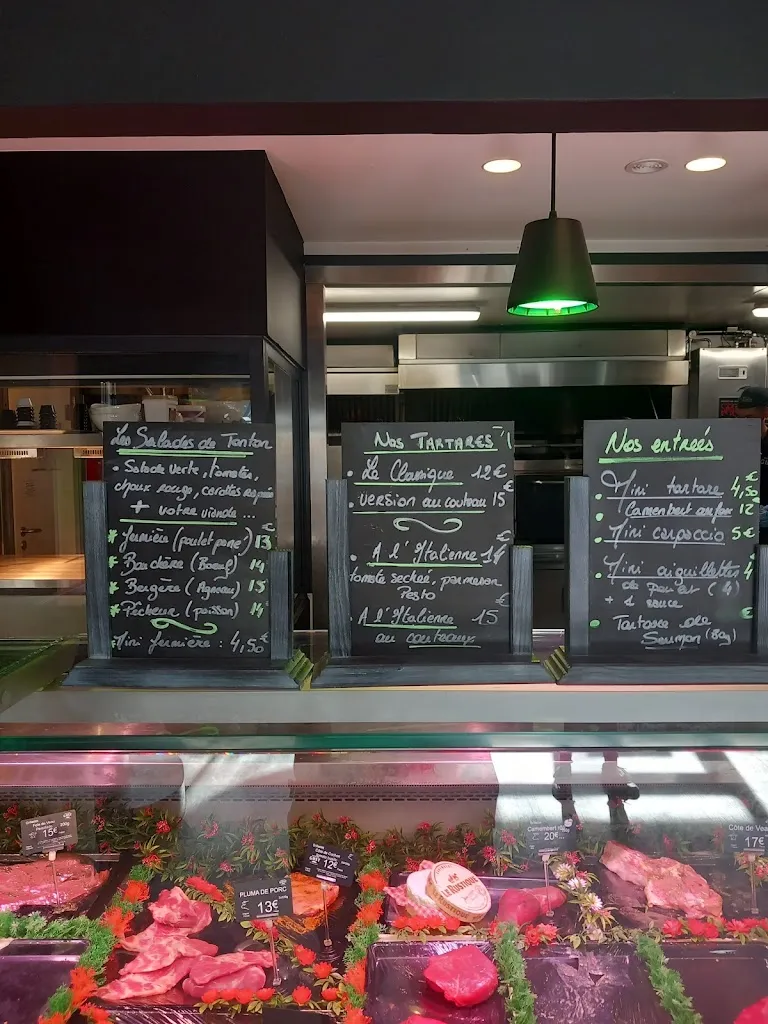 Les Salades de Tonton
• Salade verte, tomates,
choux rouge, carottes rapées
+ votre viande ...
€
* Fermière (poulet pané) 13
* Bouchère (Boeuf) 14
* Bergère (Agneau) 15
* Pêcheur (poisson) 14
Mini fermière : 4,50€
Nos TARTARES
• Le Classique 12€
• version au couteau 15€
• A l'Italienne 14€
tomate sechée, parmesan
Pesto
A l'Italienne 15€
au couteaux
Nos entreés
• Mini tartare 4,50€
• Camembert au four 12
• Mini carpaccio 5€
• Mini aiguillettes 4
de poulet (4)
+ 1 sauce
• Tartare de
Saumon (80g)
15€
12€
PLUMA DE PORC
13€
Camembert
20€
Côte de Veau
17€
LE RUSTIQUE